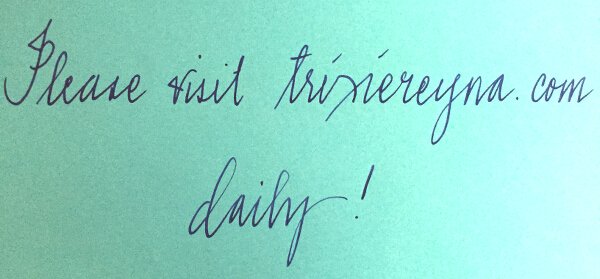 Please visit trixiereyna.com
daily!